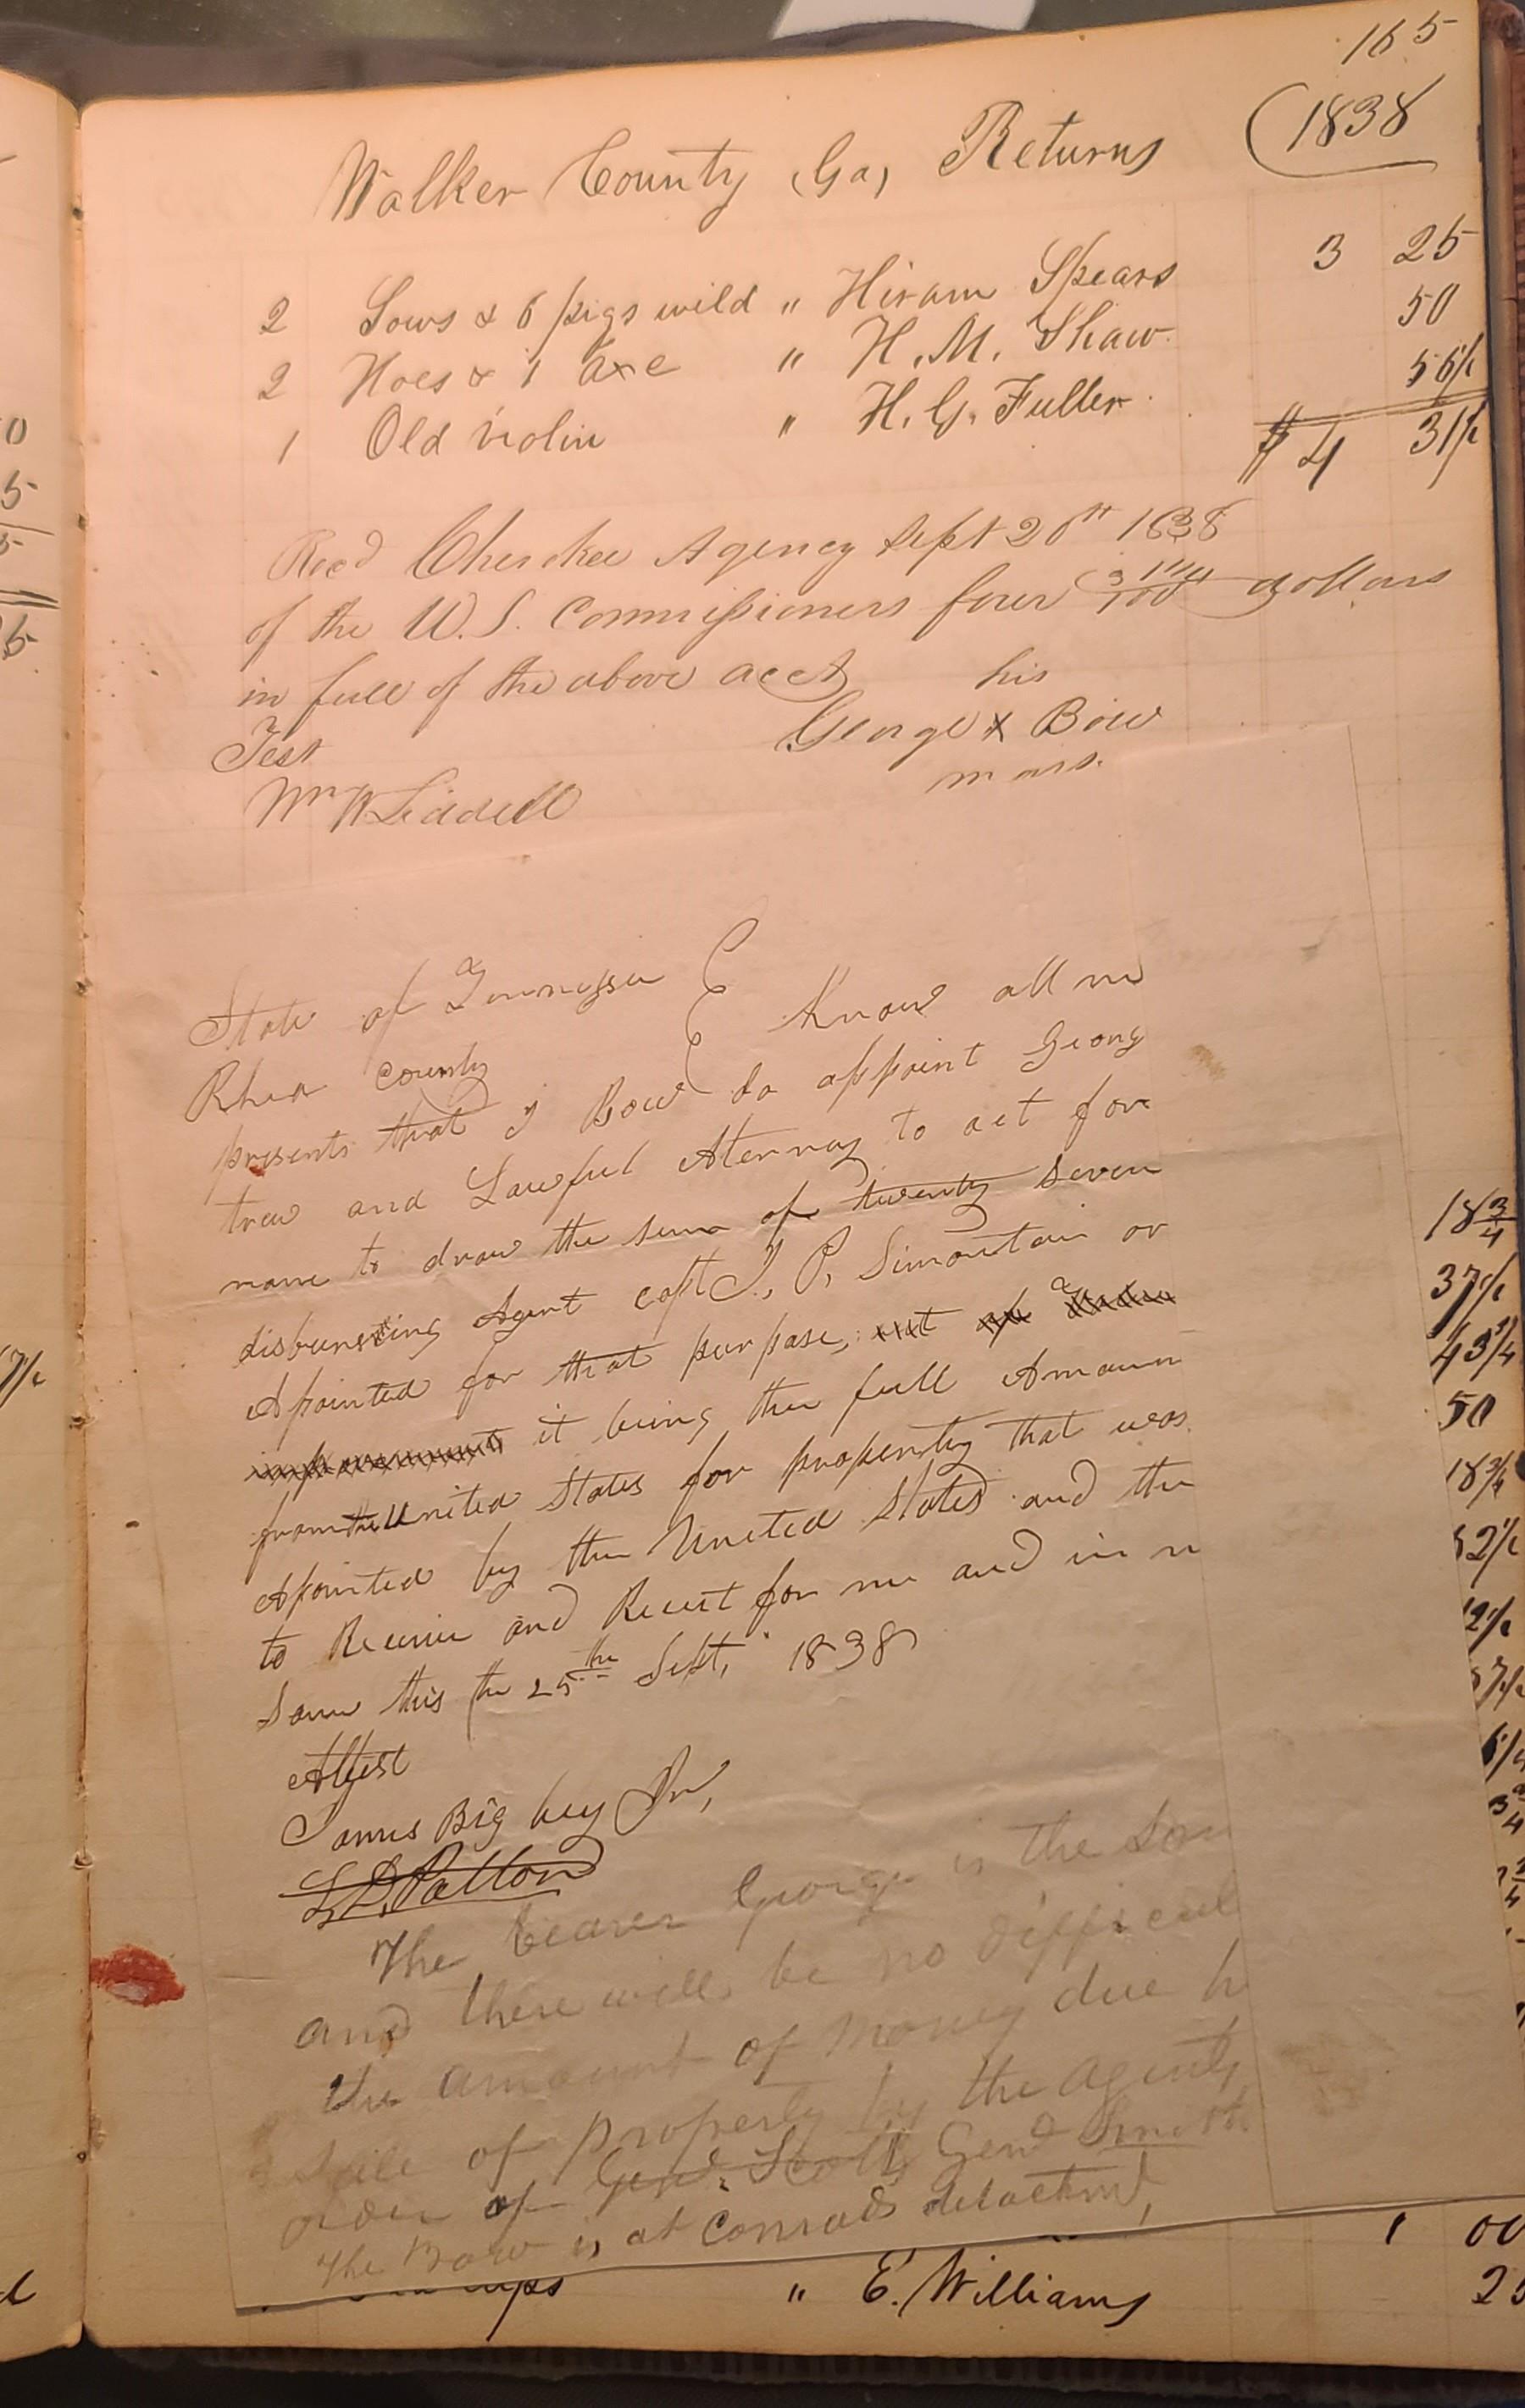 165
Walker County Ga, Returns 1838
2 Sows & 6 pigs wild " Hiram Spears 3 25
2 Hoes & 1 axe " H. M. Shaw 50
1 Old violin " H. G. Fuller 56½
$4 31½
Recd Cherokee Agency Sept 26th 1838
of the U.S. Commissioners four dollars
in full of the above acct his
Test George x Bow
mark
Wm W Liddell
State of Tennessee
Rhea county Know all me
presents that I Bow do appoint Georg
trew and Lawful Aternay to act for
name to draw the sum of twenty seven
disbursting Agent capt J. P. Simontain or
Apointed for that purpase,
improvements it being the full Amaun
from the United States for property that was
Apointed by the United States and the
to Receive and Receit for me and in n
Same this the 25th Sept, 1838
Attest
James Big bey Jnr,
L D. Patton
The bearer George is the son
and there will be no difficul
the amount of money due h
sale of property by the agents
order of Genl. Scott Genl Smith
The Bow is at Conrads detachmt,
18¾
37½
43¾
50
18¾
2½
12½
7½
6¼
cups " E. Williams 1 00